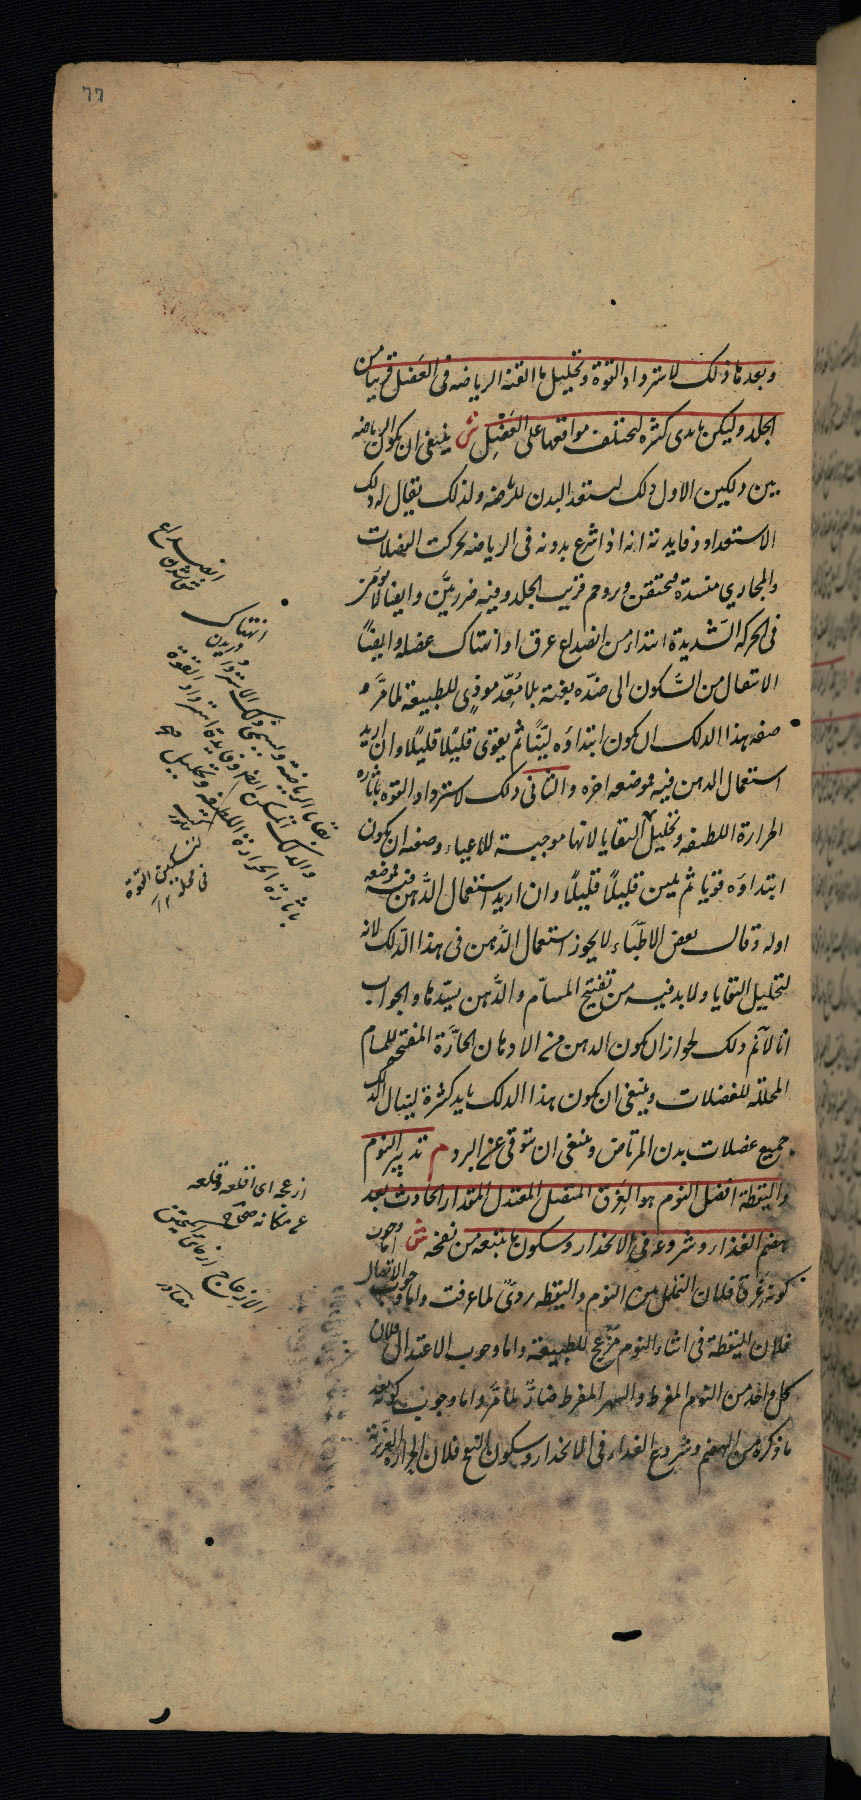 ٦٦
وبعدها دلك لاسترداد القوة وتحليل ما القته الرياضه فى العضل قريبا من
الجلد وليكن بايدى كثيره ليختلف مواقعها على العضل ش ينبغى ان يكون الرياضه
بين دلكين الاول دلك ليستعد البدن للرياضه ولذلك يقال له دلك
الاستعداد وفايدته انه اذا شرع بدونه فى الرياضه تحركت الفضلات
والمجاري منسدة فيحتقن ويزدحم قريب الجلد وفيه ضرر بيّن وايضا لا يؤمن
فى الحركة الشديدة ابتداء من انصداع عرق او انهتاك عضله وايضًا
الانتقال من السّكون الى ضدّه بغتة بلا مُعِدّ موذٍى للطبيعة لما مرَّ و
صفه هذا الدلك ان يكون ابتداؤه ليّنًا ثم يقوى قليلًا قليلًا وان اريد
استعمال الدهن فيه فموضعه اخره والثانى دلك لاسترداد القوه باثاره
الحرارة اللطيفه وتحليل البقايا لانها موجبة للاعياء وصفه ان يكون
ابتداؤه قويا ثم يلين قليلًا قليلًا وان اريد استعمال الدُّهن فيه فموضعه
اوله وقال بعض الاطبّاء لا يجوز استعمال الدُّهن فى هذا الدّلك لانه
لتحليل البقايا ولا بد فيه من تفتيح المسامّ والدُّهن يسدّها والجواب
انا لا نم ذلك لجواز ان يكون الدهن من الادهان الحارَّة المفتحة للمسام
المحللة للفضلات وينبغى ان يكون هذا الدلك بايد كثيرة لينال الدلك
جميع عضلات بدن المرتاض وينبغى ان يتوقى عن البرد م تدبير النوم
واليقظة افضل النوم هو الغرق المتصل المعتدل المقدار الحادث بعد
هضم الغذاء وشروعه فى الانحدار وسكون ما يتبعه من نفخه ش اما وجوب
كونه غرقا فلان التململ بين النوم واليقظه ردىٌ لما عرفت واما وجوب الاتصال
فلان اليقظة فى اثناء النوم مزعج للطبيعة واما وجوب الاعتدال فلان
كل واحد من النوم المفرط والسهر المفرط ضارٌّ لما مرَّ واما وجوب كونه بعد
ما ذكره من الهضم وشروع الغذاء فى الانحدار وسكون النفخ فلان الحرارة الغريزية
انصداع
شق شدن
انهتاك
دريدن
والدلك
باثارة الحرارة اللطيفة وتحليل
ازعجه اى اقلعه وقلعه
عن مكانه
الازعاج